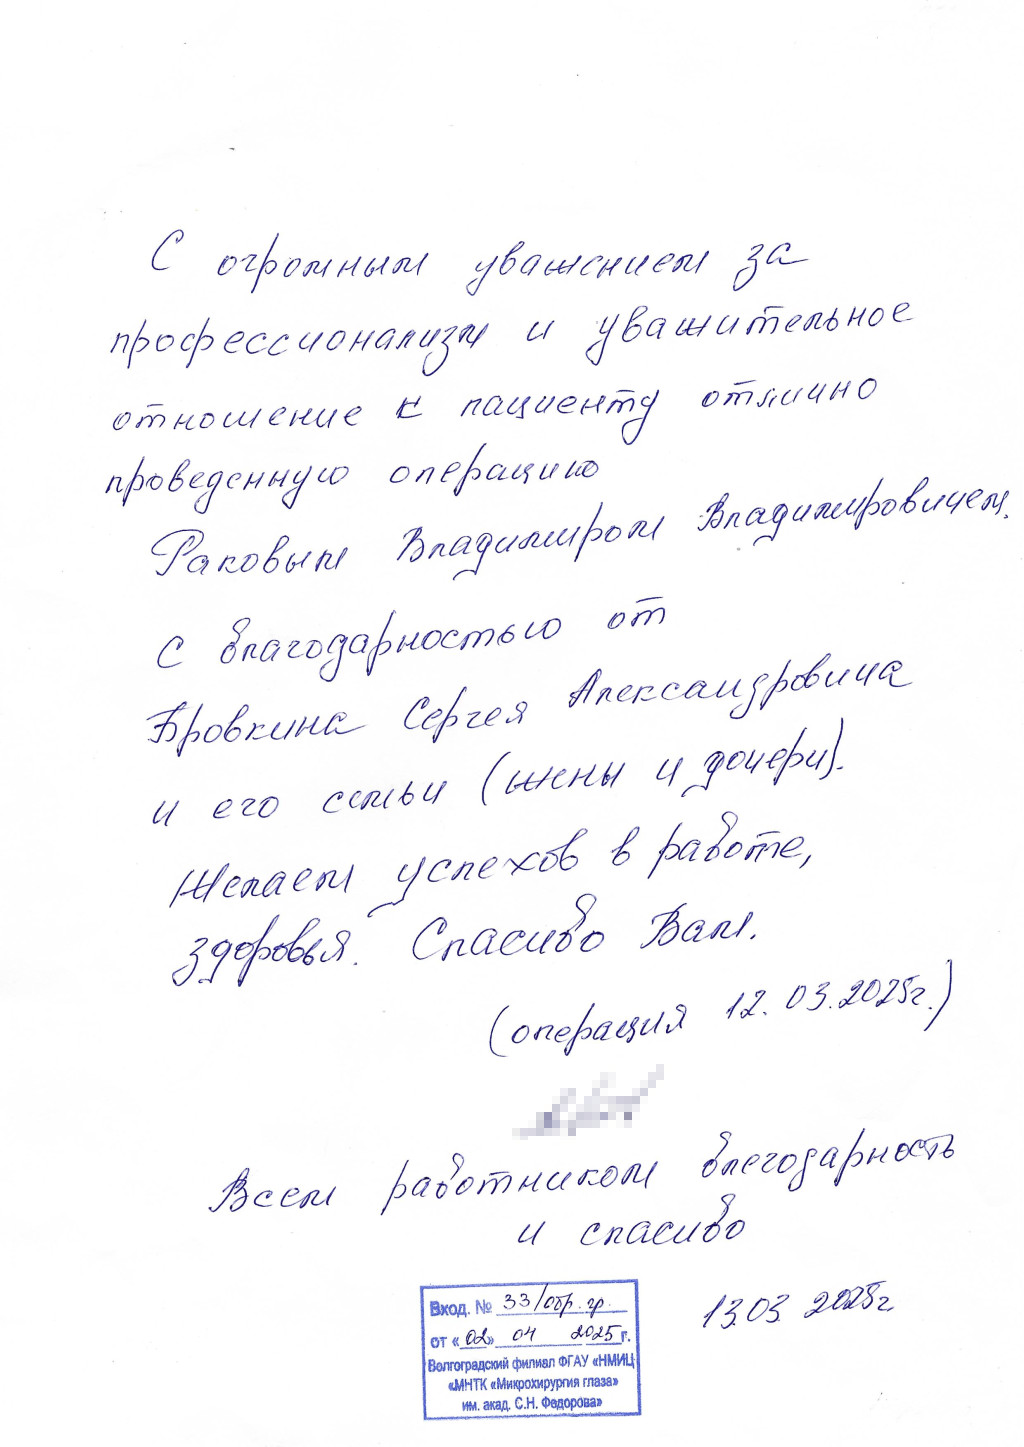 С огромным уважением за
профессионализм и уважительное
отношение к пациенту отлично
проведенную операцию
Раковым Владимиром Владимировичем.
С благодарностью от
Бровкина Сергея Александровича
и его семьи (жены и дочери).
Желаем успехов в работе,
здоровья. Спасибо Вам.
(операция 12.03.2025г.)
Всем работником благодарность
и спасибо
13.03.2025г
Вход. № 33/обр. гр.
от «02» 04 2025г.
Волгоградский филиал ФГАУ «НМИЦ
«МНТК «Микрохирургия глаза»
им. акад. С.Н. Федорова»